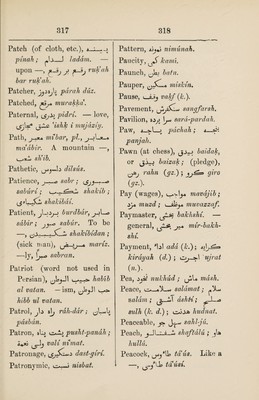 317
Patch (of cloth, etc.), پینه
pínah; لادم ladám. —
upon —, رقعه بر رقعه ruḳ'ah
bar ruḳ'ah.
Patcher, پاره دوز párah dúz.
Patched, مرقع muraḳḳa'.
Paternal, پدری pidrí. — love,
عشق مجازی 'ishḳ i mujáziy.
Path, معبر mi'bar, pl.,
ma'ábir. A mountain —,
شعب sh'ib.
Pathetic, دلسوز dilsúz.
Patience, صبر sabr; صبوری
sabúrí; شکیب shakib;
شکیبائی shakibái.
Patient, بردبار burdbár, صابر
sábir; صبور sabúr. To be
—, شکیبیدن shakibídan;
(sick man), مریض maríz.
—ly, صبراً sabran.
Patriot (word not used in
Persian), حب الوطن habib
al vatan. — ism,
hibb ul vatan.
Patrol, راه دار ráh-dár; پاسبان
pásbán.
Patron, پشت پناه pusht-panáh;
ولی نعمت valí ni'mat.
Patronage, دستگیری dast-girí.
Patronymic, نسبت nisbat.
318
Pattern, نمونه nimúnah.
Paucity, کمی kamí.
Paunch, بطن batn.
Pauper, مسکین miskín.
Pause, وقف vaḳf (k.).
Pavement, سنگفرش sangfarsh.
Pavilion, سراپرده sará-pardah.
Paw, پاچه páchah; پنجه
panjab.
Pawn (at chess), بیدق baidaḳ,
or بیذق baizaḳ; (pledge),
رهن rahn (gz.); گرو gira
(gz.).
Pay (wages), مواجب mavájib;
مزد muzd; موظف muvazzaf.
Paymaster, بخشی bakhshí. —
general, میر بخشی mír-bakh-
shí.
Payment, ادا adá (k.);
kiráyah (d.); اجرت 'ujrat
(n.).
Pea, نخود nukhúd; ماش másh.
Peace, سلامت salámat; سلام
salám; آشتی áshtí; صلح
sulh (k. d.); هدنت hudnat.
Peaceable, صلح جو sahl-jú.
Peach, شفتالو shaftálú;
hullú.
Peacock, طاؤس tá'ús. Like a
—, طاؤسی tá'úsí.